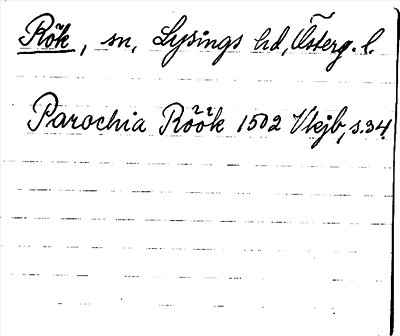 Rök, sn, Lysings hd, Österg. l.
Parochia Röök 1502 Vlejb, s. 34